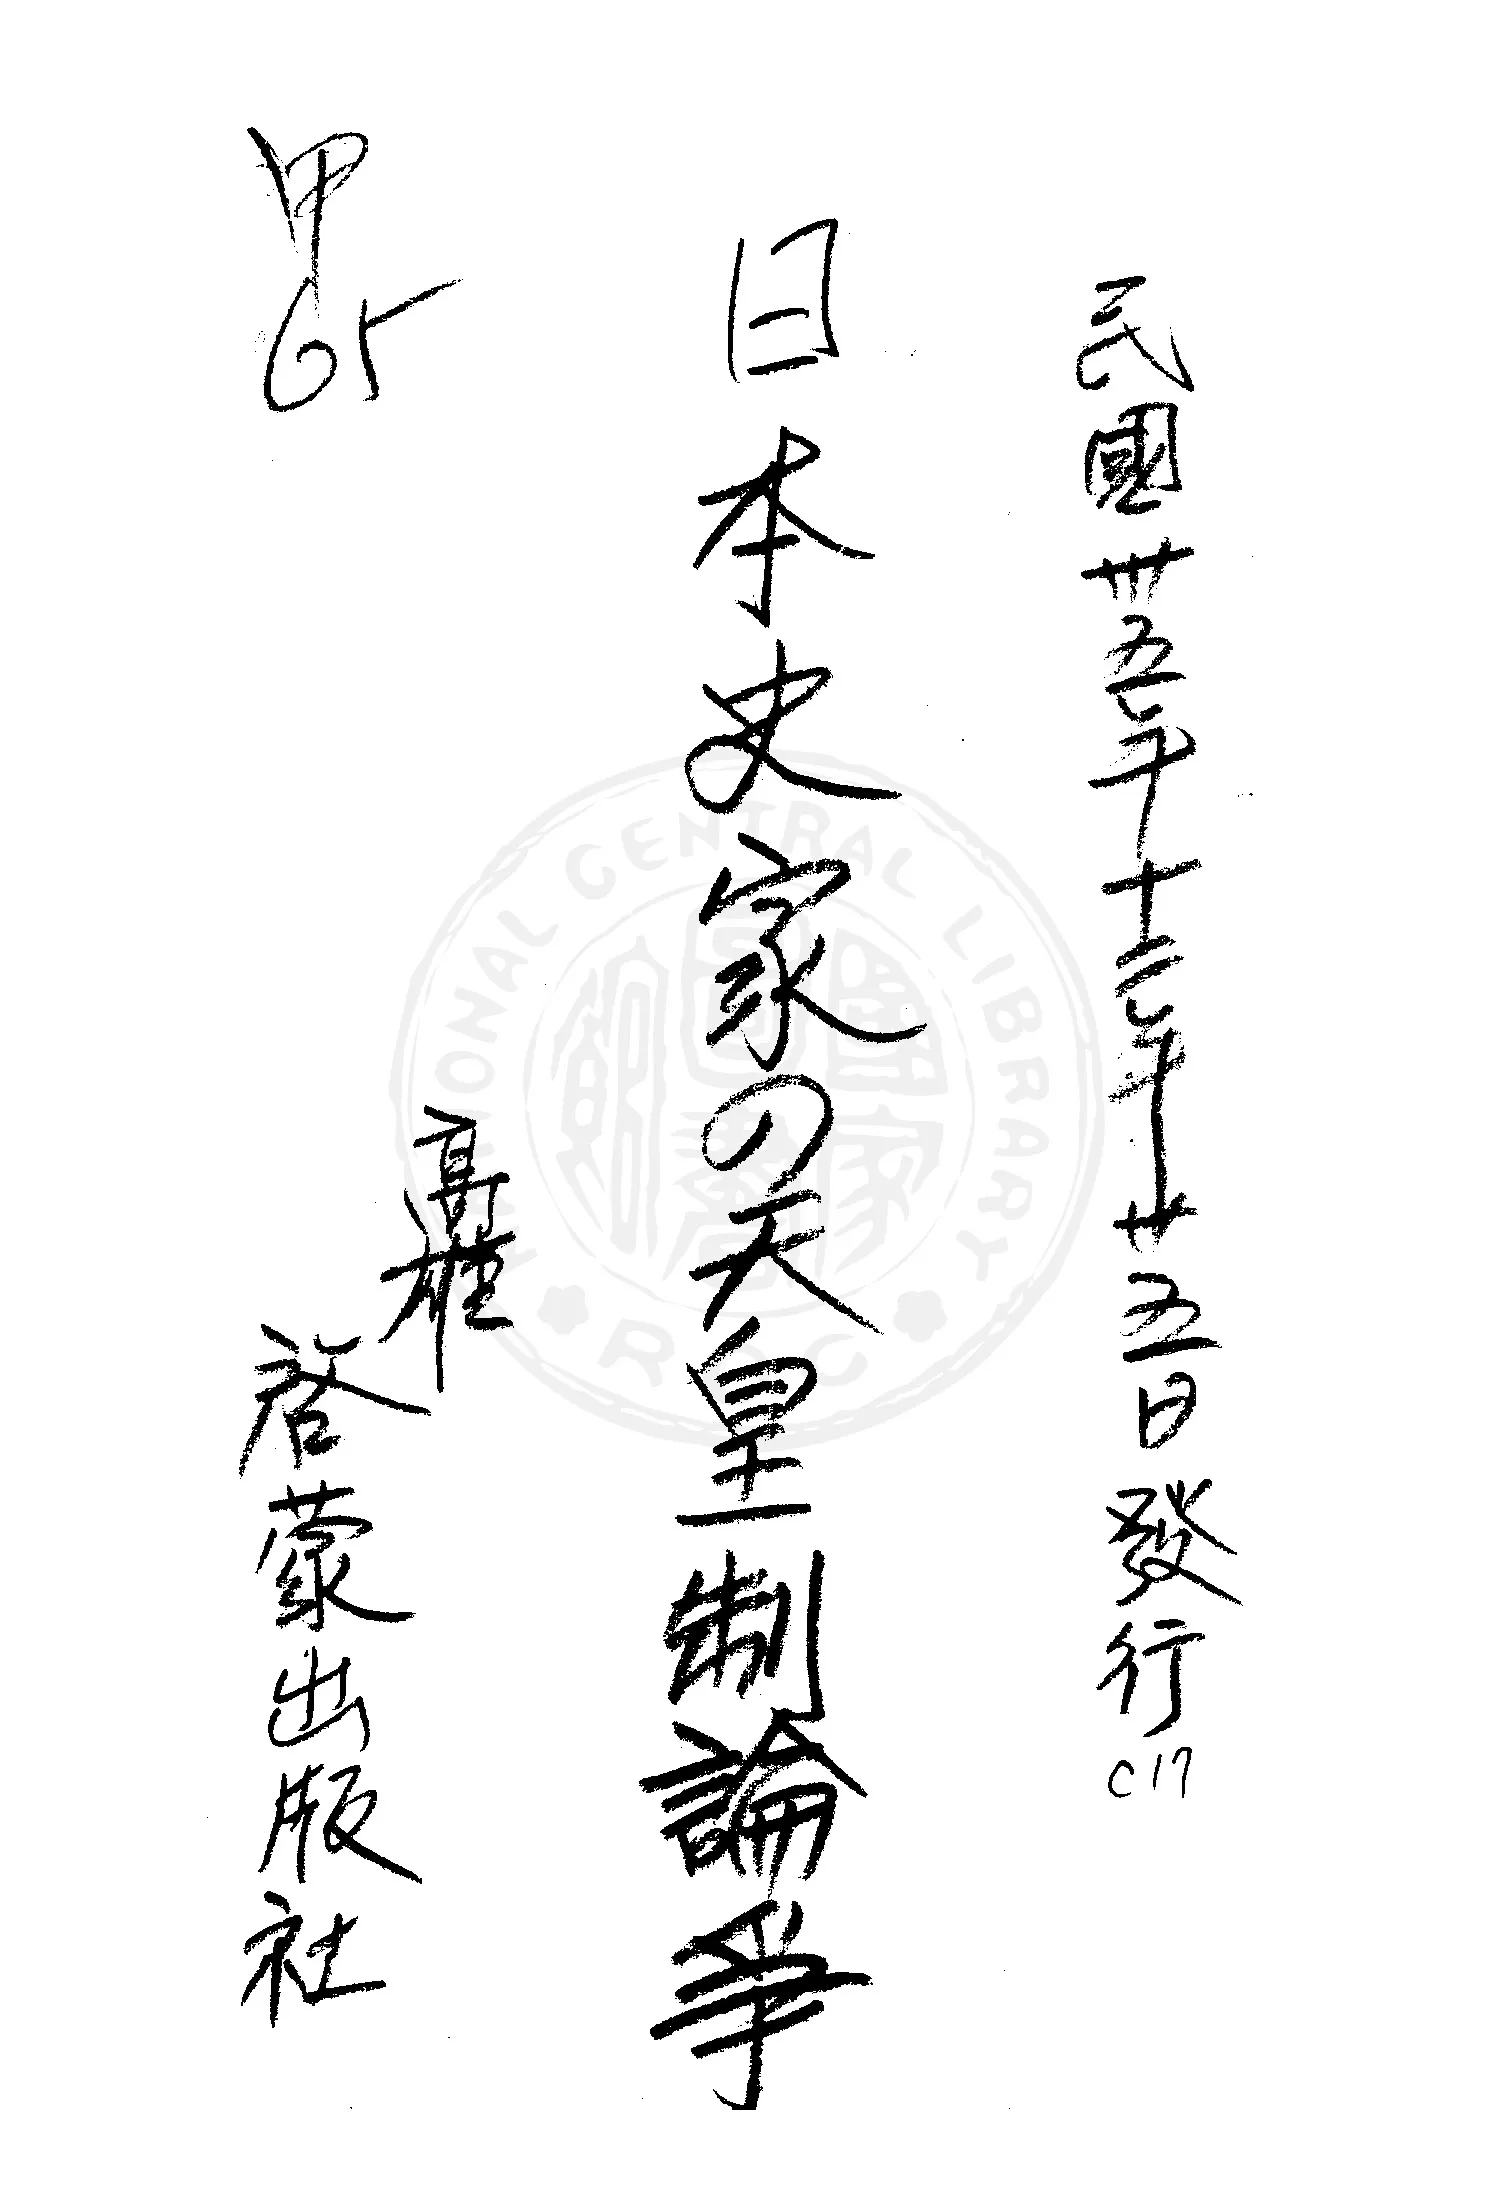 民國卅五年十二月廿五日發行
C17
日本史家の天皇制論爭
高雄
啓蒙出版社
甲
65
NATIONAL CENTRAL LIBRARY
R.O.C
國家圖書館